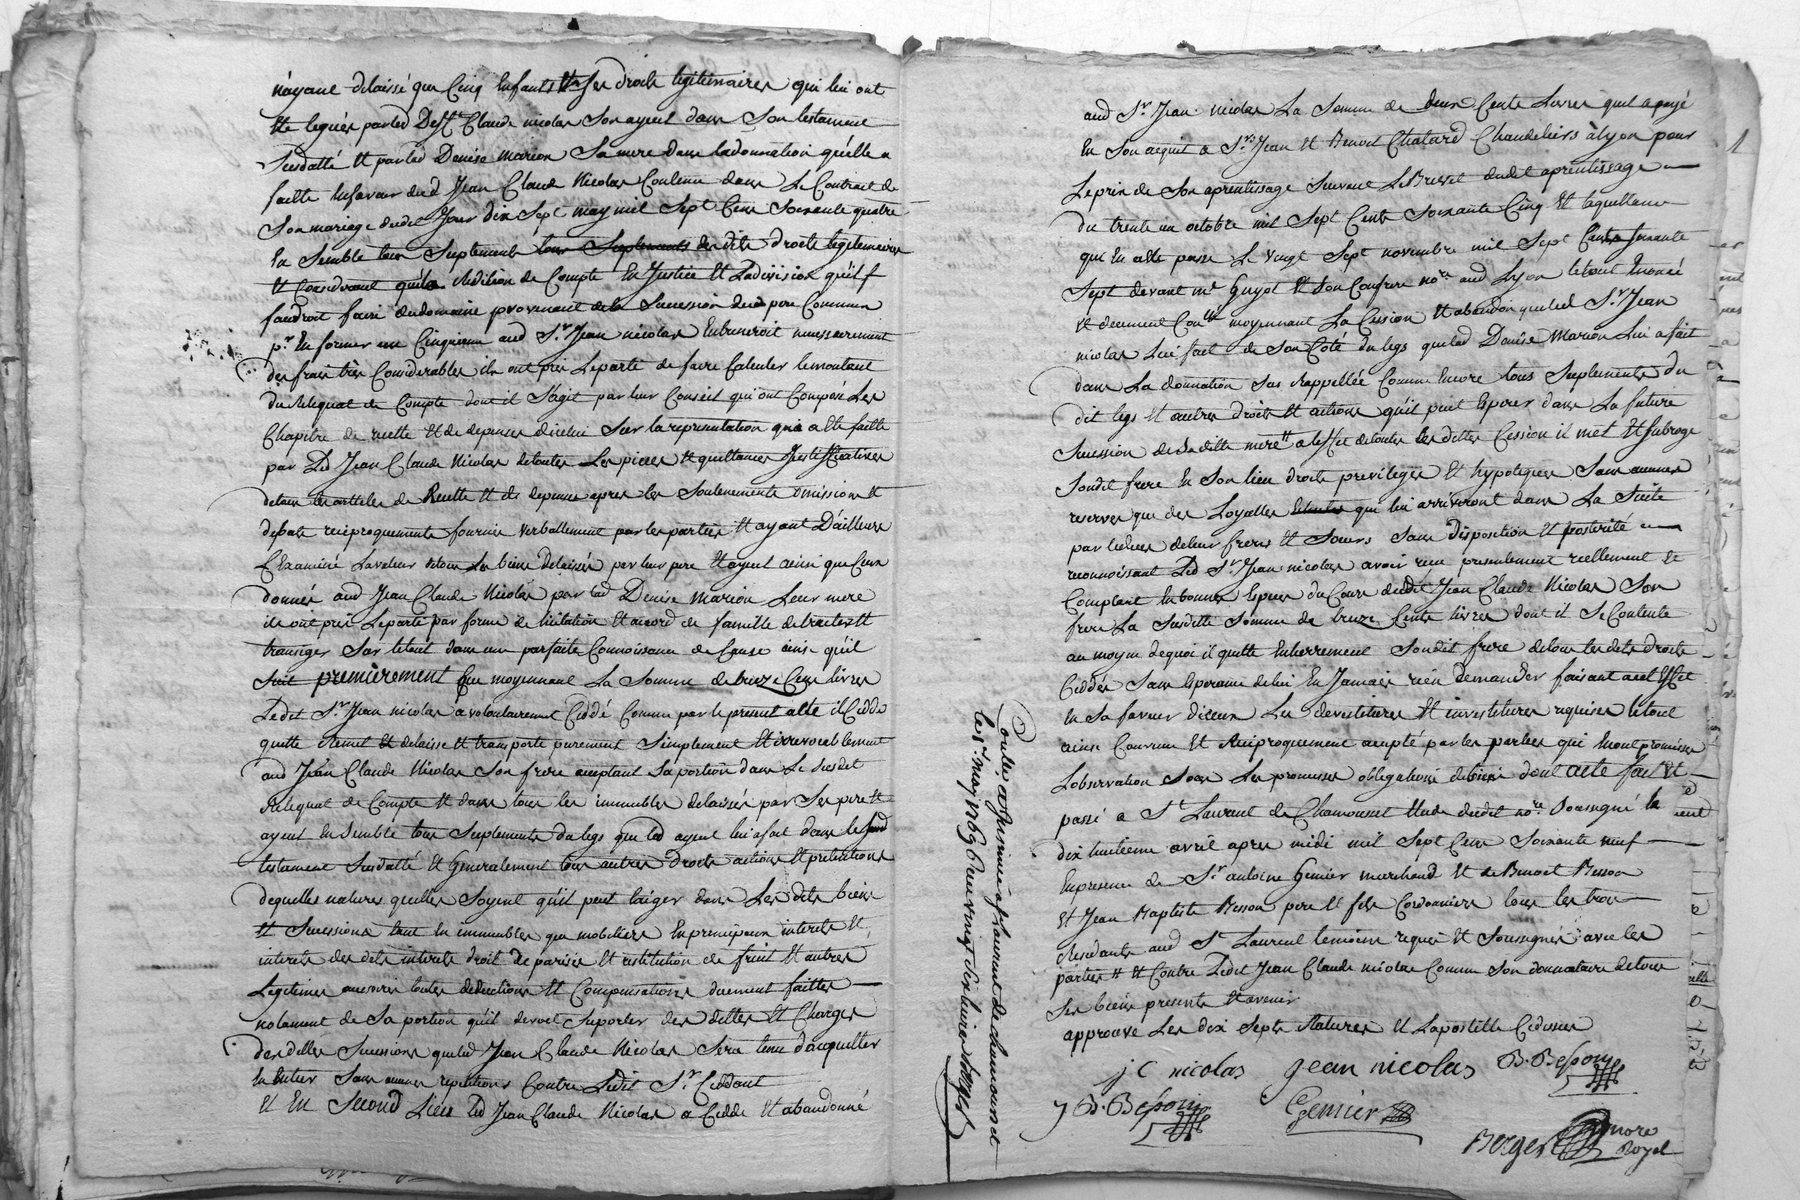 n'ayant delaissé que Cinq Enfants Et les droits legitimaires qui lui ont
ete legués par led Deft Claude nicolas Son ayeul dans Son testament
Susdatté Et par lad Denise Marion Sa mere dans la donnation qu'elle a
faitte En faveur dud Jean Claude Nicolas Contenue dans Le Contrait de
Son mariage dudit Jour dix Sept may mil Sept Cent Soixante quatre
En Semble tous Suplements des dits droits legitimaires
Et Considerant que la Redition de Compte En Justice Et La division qu'il
faudroit faire du domaine provenant de la Succession du pere Commun
pr En former un Cinquieme aud Sr Jean nicolas Entraineroit necessairement
des frais très Considerables ils ont pris Le parti de faire Calculer le montant
du Reliquat de Compte dont il S'agit par leur Conseil qui ont Composé Les
Chapitre de recette Et de depense d'icelui Sur la representation qui a ete faitte
par Led Jean Claude Nicolas de toutes Les pieces Et quittances Justifficatives
de tous les articles de Recette Et de depense apres les Soutenements omissions Et
debats reciproquement fournis verballement par les parties Et ayant D'ailleurs
Examiné La valeur de tous Les biens delaissés par leur pere Et ayeul ainsi que Ceux
donnés aud Jean Claude Nicolas par lad Denise Marion Leur mere
ils ont pris Le parti par forme de licitation Et accord de famille de traiter Et
transiger Sur le tout dans une parfaite Connoissance de Cause ainsi qu'il
Suit premièrement Que moyennant La Somme de treize Cent livres
Ledit Sr Jean nicolas a volontairement Ceddé Comme par le present acte il Cedde
quitte remet Et delaisse Et transporte purement Simplement Et irrevocablement
aud Jean Claude Nicolas Son frère acceptant Sa portion dans Le Susdit
Reliquat de Compte Et dans tous les immeubles delaissés par Ses pere Et
ayeul En Semble tous Suplements du legs que led ayeul lui a fait dans le Susd
testament Susdatté Et Generalement tous autres Droits actions Et pretentions
de quelles natures quelles Soyent qu'il peut Exiger dans Les dits biens
Et Successions tant En immeubles que mobiliers En principaux interets Et
interets des dits interets droit De parisis Et restitution de fruit Et autres
Legitimes accessoires toutes deductions Et Compensations duement faittes
notament de Sa portion qu'il devoit Suporter des dettes Et Charges
des dittes Successions que led Jean Claude Nicolas Sera tenu d'acquitter
En Entier Sans aucunes repetitions Contre Ledit Sr Ceddant
Et En Second Lieu Led Jean Claude Nicolas a Cedde Et abandonné
aud Sr Jean nicolas La Somme de deux Cents Livres qu'il a payé
En Son acquit a Srs Jean Et Benoit Chatard Chandeliers à Lyon pour
Le prix de Son aprentissage Suivant Le Brevet dudit aprentissage
du trente un octobre mil Sept Cents Soixante Cinq Et la quittance
qui En a ete passe Le vingt Sept novembre mil Sept Cents Soixante
Sept devant me Guyot Et Son Confrere nores aud Lyon le tout Enoncé
Et deuement Conlle moyennant La Cession Et abandon que led Sr Jean
nicolas Lui fait de Son Coté du legs que lad Denise Marion Lui a fait
dans La donnation Sus Rappellée Comme Encore tous Suplements du
dit legs Et autres droits Et actions qu'il peut Esperer dans La future
Succession de Sa ditte mere a l'effet de toutes les dittes Cession il met Et Subroge
Sondit frere En Son lieu droits previleges Et hypoteques Sans aucunes
reserves que des Loyalles qui lui arriveront dans La Suite
par le deces de leur freres Et Soeurs Sans Disposition Et posterité
reconnoissant Led Sr Jean nicolas avoir reçu presentement reellement Et
Comptant En bonnes Especes du Cours dudit Jean Claude Nicolas Son
frere La Susditte Somme de treize Cents livres dont il Se Contente
au moyen de quoi il quitte Entierement Sondit frere de tous les dits droits
Ceddés Sans Esperance de lui En Jamais rien demander faisant a cet Effet
En Sa faveur d'iceux Les devestitures Et investitures requises le tout
ainsi Convenu Et Reciproquement accepté par les parties qui En ont promis
L'observation Sous Les promesses obligations de biens dont acte fait Et
passé a St Laurent de Chamousset Etude dudit nore Soussigné le
dix huitieme avril apres midi mil Sept Cent Soixante neuf
En presence de Sr antoine Gemier marchand Et de Benoit Besson
Et Jean Baptiste Besson pere Et fils Cordonniers tous les trois
Residants aud St Laurent temoins requis Et Soussignés avec les
parties Et Contre Ledit Jean Claude nicolas Comme Son donnataire de tous
Ses biens presents Et avenir
approuvé Les dix Septs Ratures Et L'apostille Cidessus
j C nicolas jean nicolas B. Besson
J B. Besson Gemier
Berger nore Royal
Controllé a St Laurent de chamousset
le 1r may 1769 Reçu vingt Berger